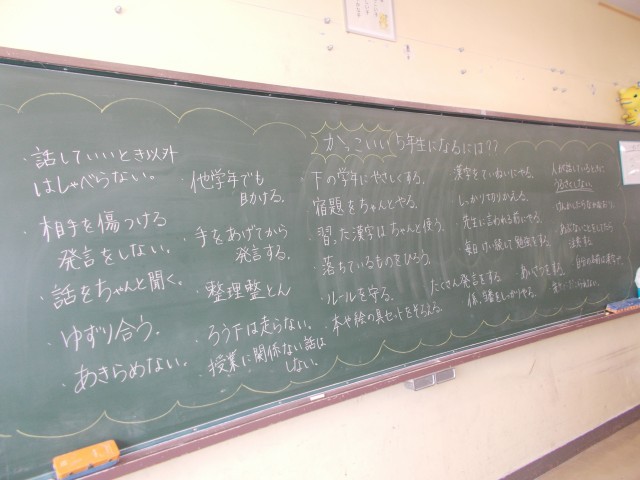 かっこいい5年生になるには??
・話していいとき以外
はしゃべらない。
・相手を傷つける
発言をしない。
・話をちゃんと聞く。
・ゆずり合う。
・あきらめない。
・他学年でも
助ける。
・手をあげてから
発言する。
・整理整とん
・ろう下は走らない。
・授業に関係ない話は
しない。
・下の学年にやさしくする。
・宿題をちゃんとやる。
・習った漢字はちゃんと使う。
・落ちているものをひろう。
・ルールを守る。
・本や絵の具セットをそろえる。
漢字をていねいにやる。
しっかり切りかえる。
先生に言われる前にやる。
毎日けい続して勉強をする。
たくさん発言をする。
あいさつをする。
係、当番をしっかりやる。
人が話しているときに
うるさくしない。
注意する。